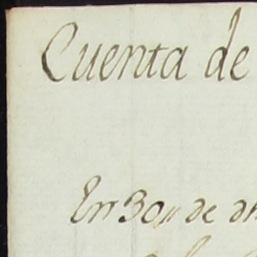 Cuenta de
En 30,, de